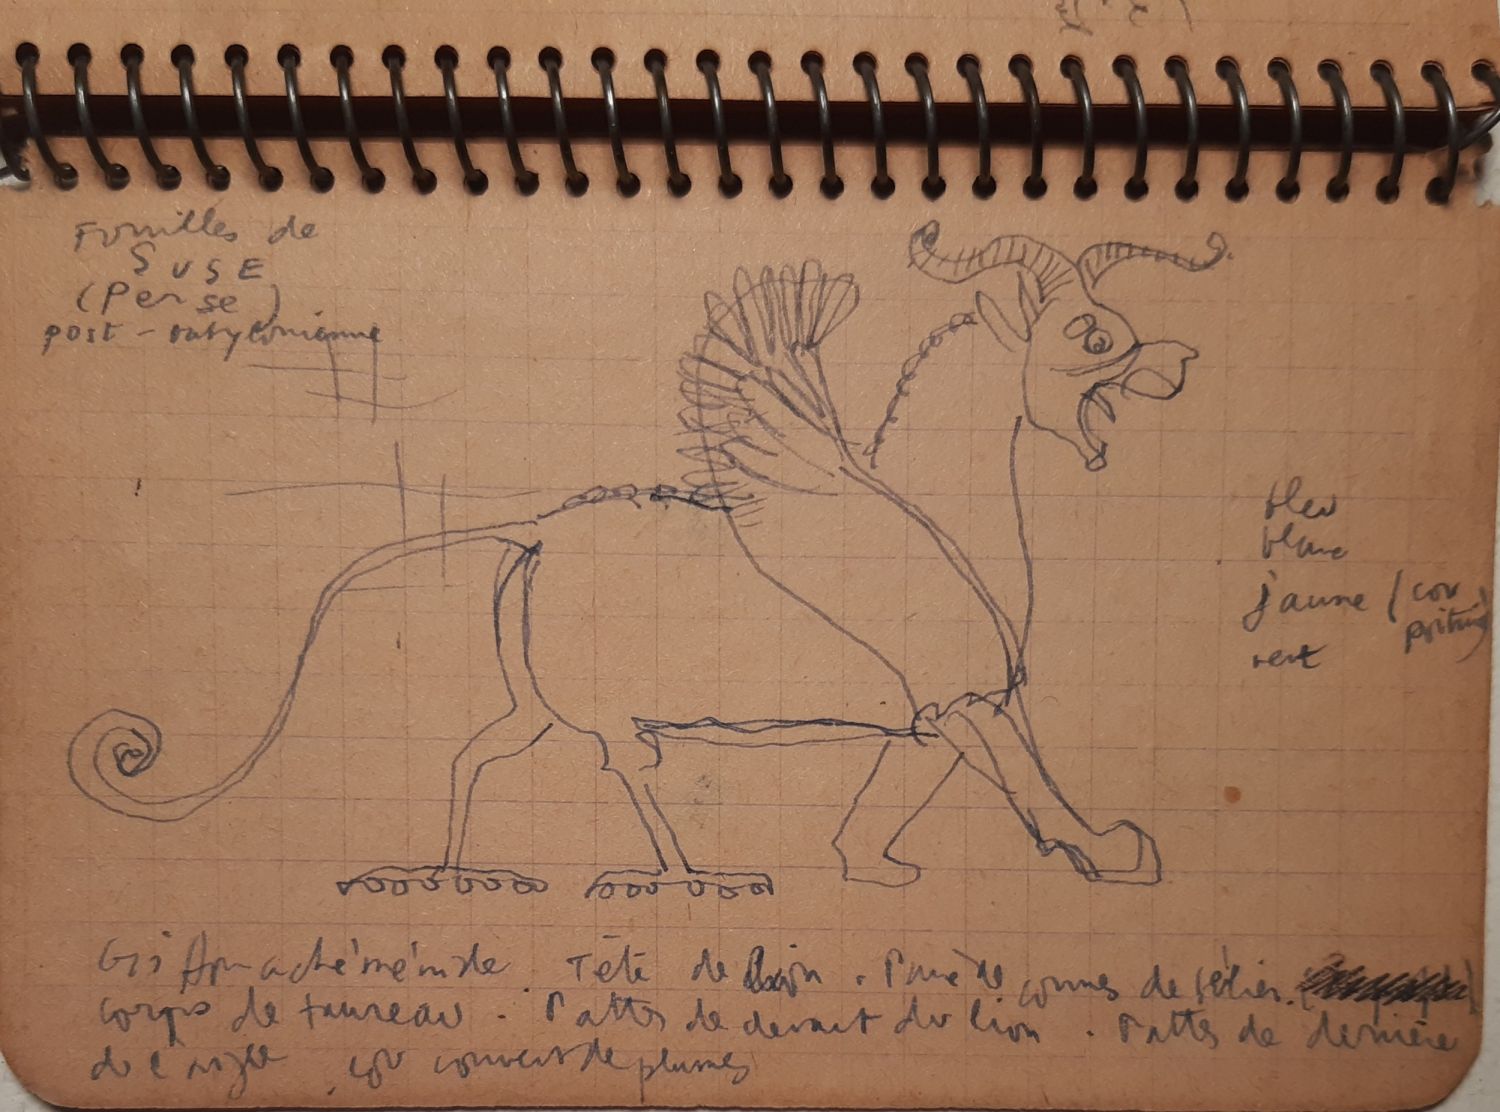 Fouilles de
SUSE
(Perse)
post-babylonienne
bleu
blanc
jaune (cou
poitrine)
vert
Griffon achéménide. Tête de lion. Paire de cornes de bélier.
corps de taureau. Pattes de devant du lion. Pattes de derrière
de l'aigle, cou couvert de plumes